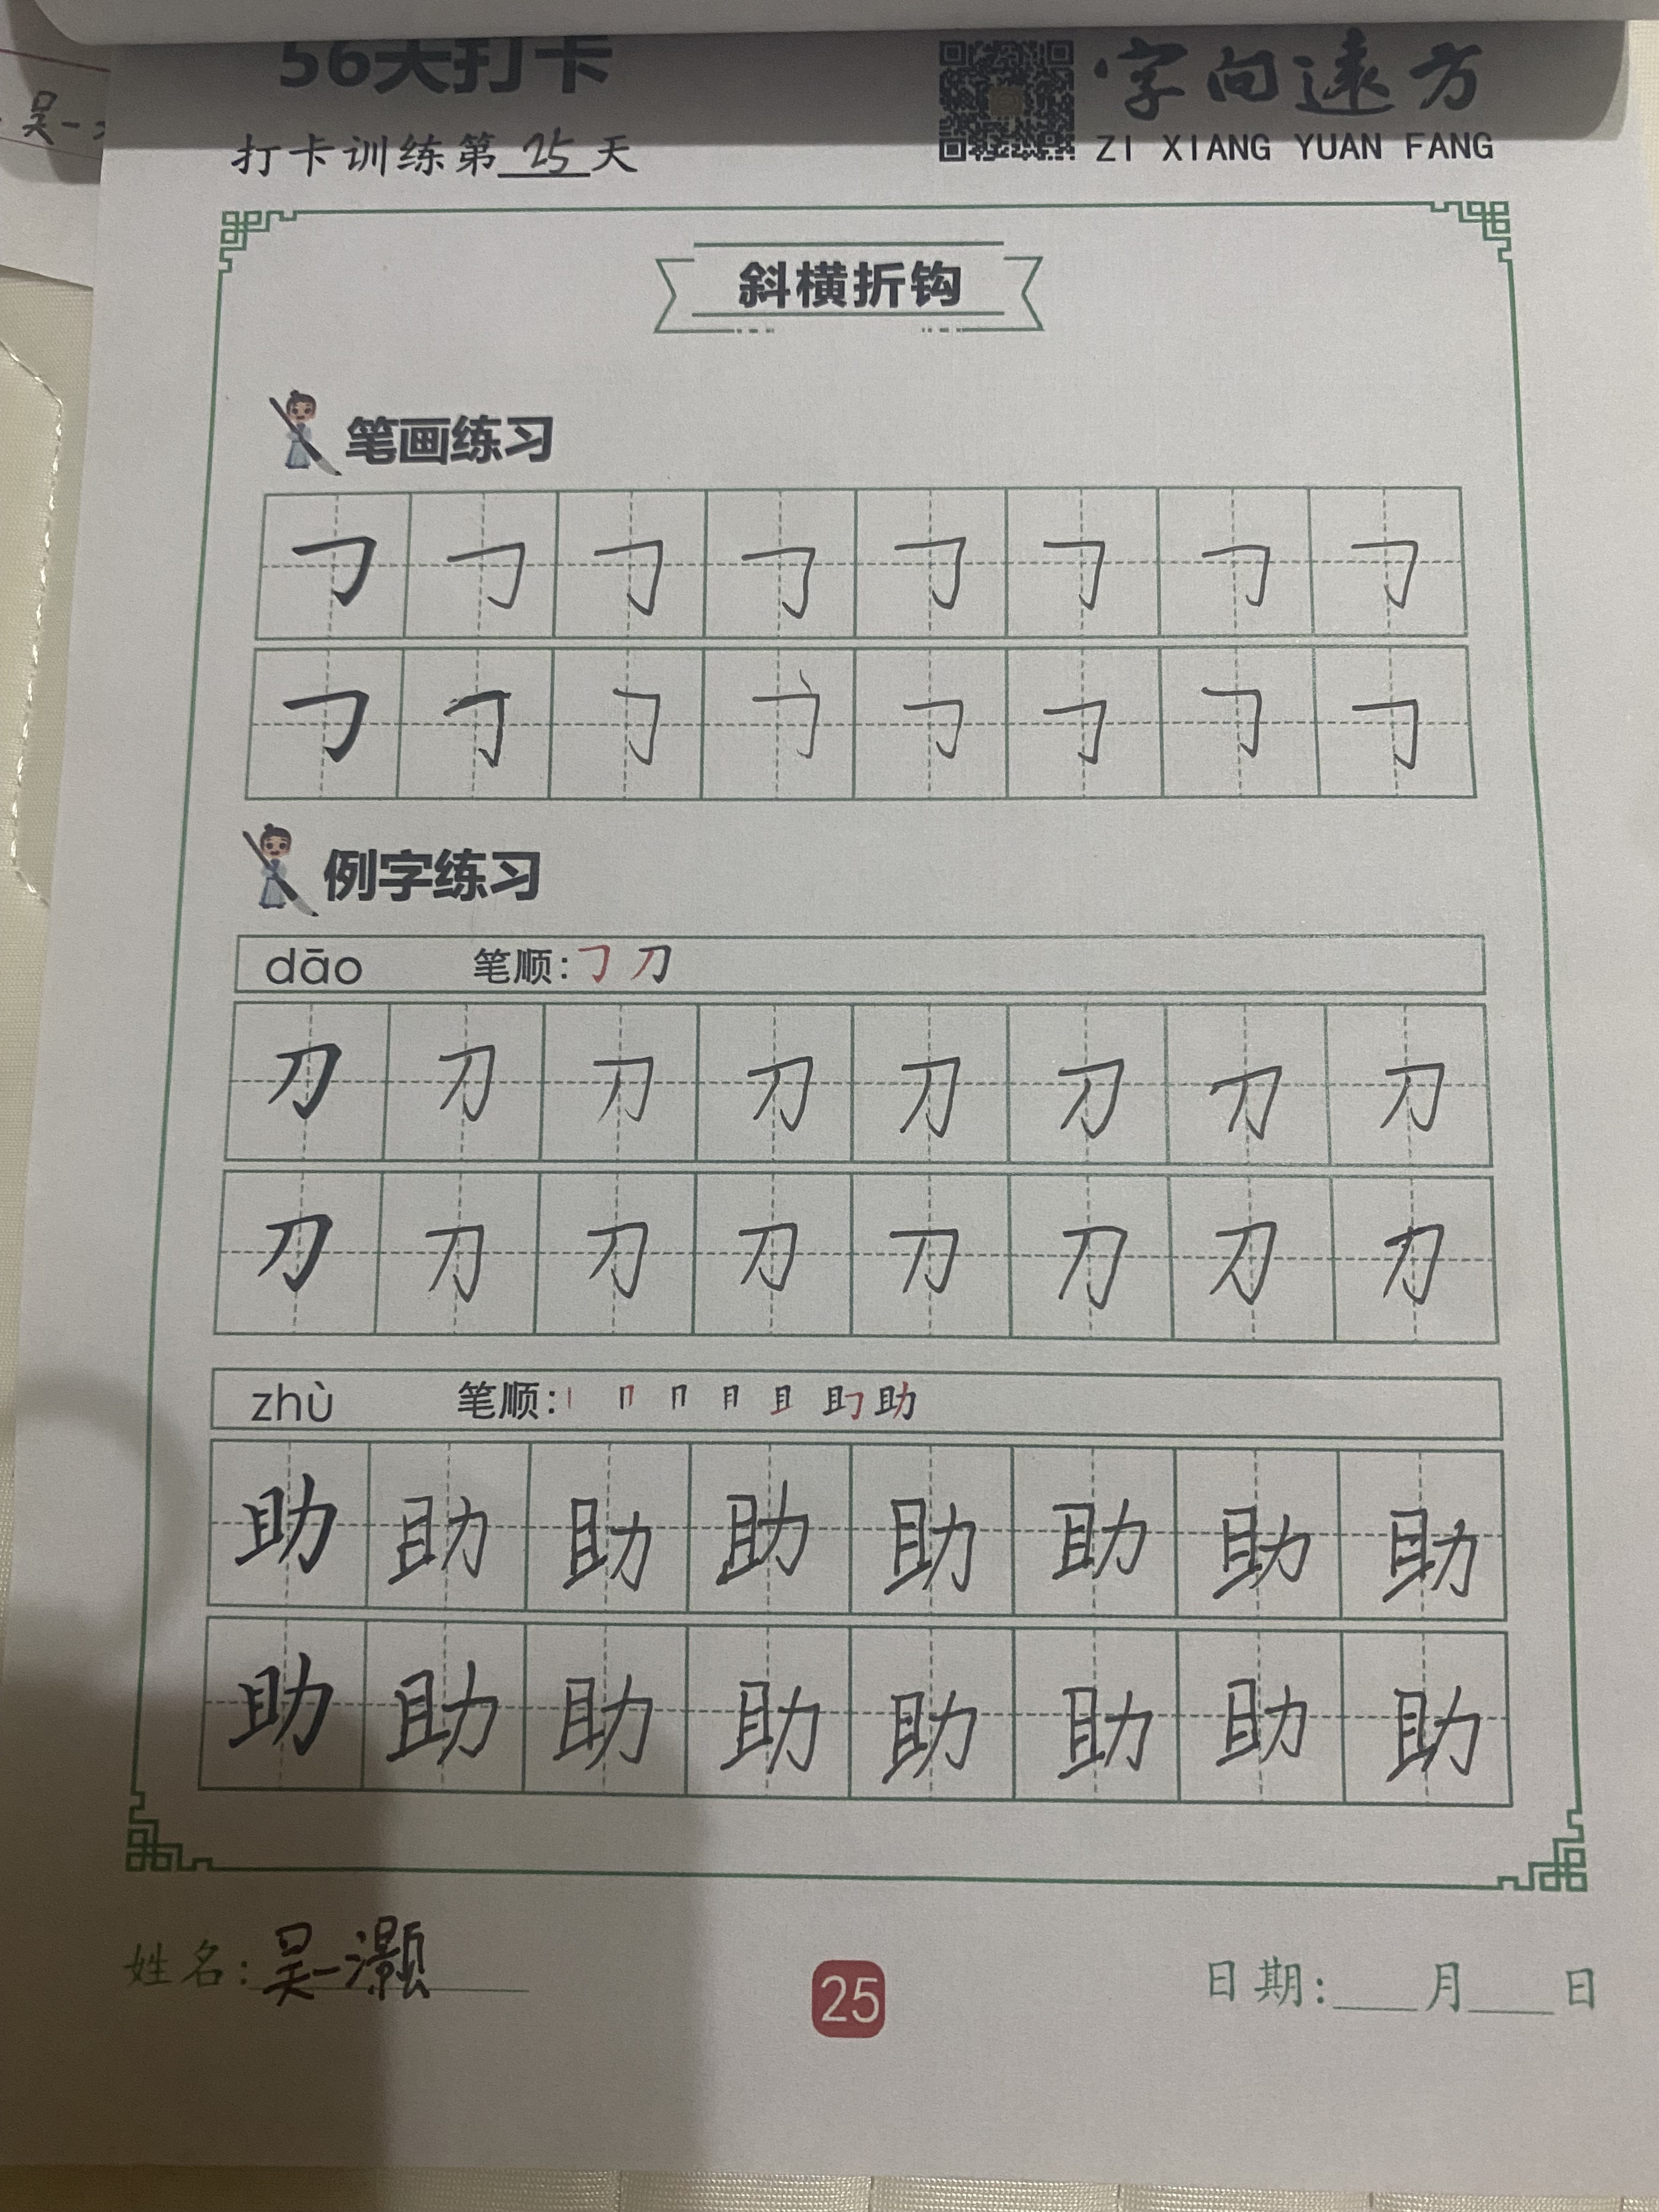 56天打卡
字向远方
打卡训练第25天
ZI XIANG YUAN FANG
吴一
斜横折钩
笔画练习
㇆ ㇆ ㇆ ㇆ ㇆ ㇆ ㇆ ㇆
㇆ ㇆ ㇆ ㇆ ㇆ ㇆ ㇆ ㇆
例字练习
dāo 笔顺:㇆ 刀
刀 刀 刀 刀 刀 刀 刀 刀
刀 刀 刀 刀 刀 刀 刀 力
zhù 笔顺:丨 冂 月 且 助
助 助 助 助 助 助 助 助
助 助 助 助 助 助 助 助
姓名:吴一灏
25
日期:___月___日